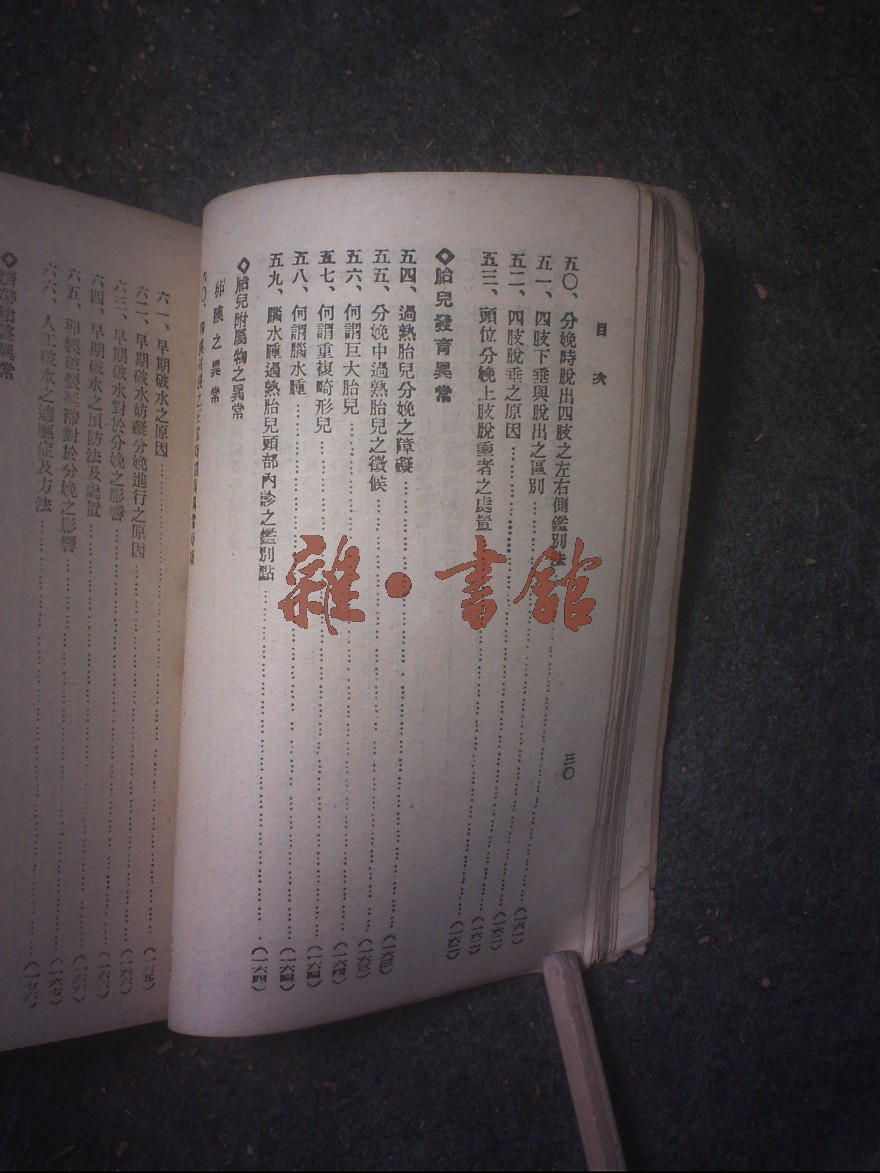 目次
三〇
五〇、分娩時脫出四肢之左右側鑑別法……（一六一）
五一、四肢下垂與脫出之區別……（一六一）
五二、四肢脫垂之原因……（一六一）
五三、頭位分娩上肢脫垂者之處置……（一六二）
◇胎兒發育異常
五四、過熟胎兒分娩之障礙……（一六三）
五五、分娩中過熟胎兒之徵候……（一六三）
五六、何謂巨大胎兒……（一六四）
五七、何謂重複畸形兒……（一六四）
五八、何謂腦水腫……（一六四）
五九、腦水腫過熟胎兒頭部內診之鑑別點……（一六四）
◇胎兒附屬物之異常
卵膜之異常
六〇、
六一、早期破水之原因……（一六五）
六二、早期破水妨礙分娩進行之原因……（一六六）
六三、早期破水對於分娩之影響……（一六六）
六四、早期破水之預防法及處置……（一六六）
六五、卵膜破裂延滯對於分娩之影響……（一六七）
六六、人工破水之適應症及方法……（一六七）
◇臍帶胎盤異常
雜·書館